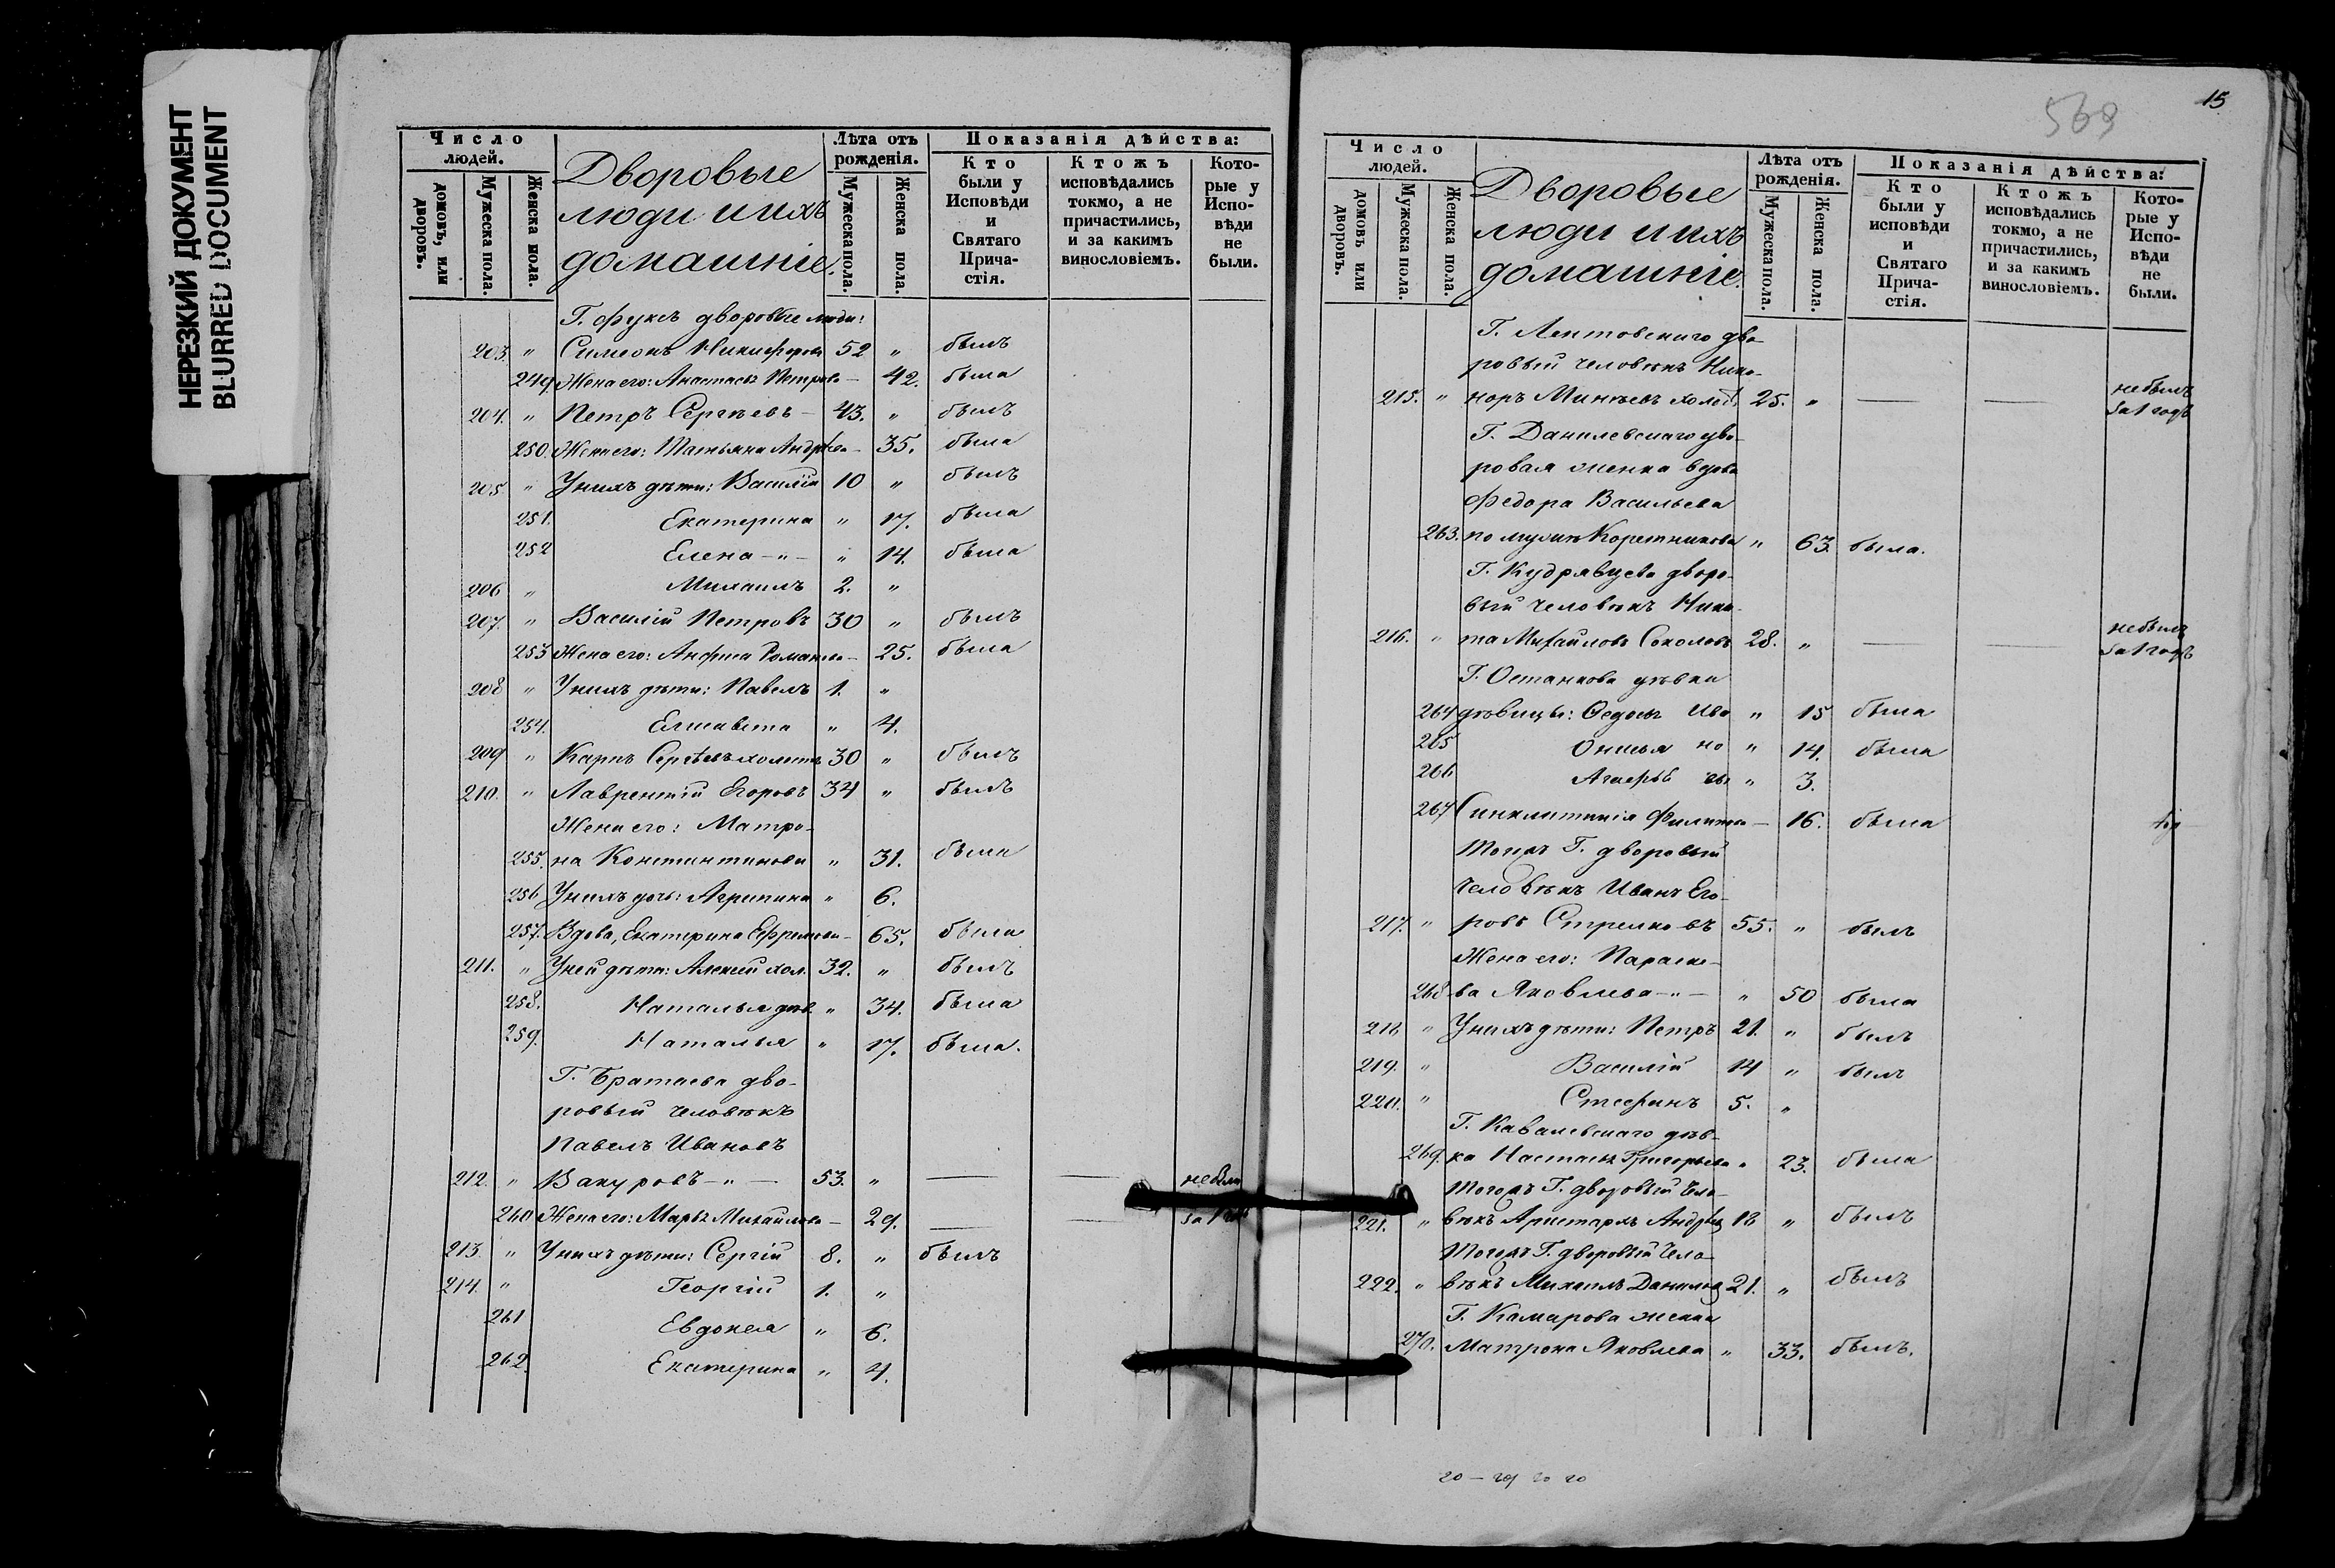 НЕРЕЗКИЙ ДОКУМЕНТ
BLURRED DOCUMENT
Число людей.
домовъ, или дворовъ.
Мужеска пола.
Женска пола.
Дворовые
люди и ихъ
домашніе.
Лѣта отъ рожденія.
Мужеска пола.
Женска пола.
Показанія дѣйства:
Кто были у Исповѣди и Святаго Прича-стія.
Ктожъ исповѣдались токмо, а не причастились, и за какимъ винословіемъ.
Кото-рые у Испо-вѣди не были.
Г. Фуксъ дворовые люди:
203. " Симеонъ Никифоровъ 52 " былъ
249. Жена его: Анастасья Петрова – 42. была
204. " Петръ Сергѣевъ – 43. " былъ
250. Жена его: Татьяна Андрѣева – 35. была
205. " У нихъ дѣти: Василій 10 " былъ
251. Екатерина " 17. была
252 Елена – " – " 14. была
206 " Михаилъ 2. "
207. " Василій Петровъ 30 " былъ
253 Жена его: Анфиса Романова – 25. была
208 " У нихъ дѣти: Павелъ 1. "
254. Елисавета " 4.
209 " Карпъ Сергѣевъ холостъ 30 " былъ
210. " Лаврентій Егоровъ 34 " былъ
Жена его: Матро-
255. на Константинова " 31. была
256 У нихъ дочь: Агрипина " 6.
257. Вдова, Екатерина Ефремова – 65. была
211. " У ней дѣти: Алексей хол. 32. " былъ
258. Наталья дѣв. " 34. была
259. Наталья " 17. была.
Г. Братаева дво-
ровый человѣкъ
Павелъ Ивановъ
212. " Вакуровъ – " – 53. " — — небыли
260 Жена его: Марья Михайлова – 29. — — за 1 годъ
213. " У нихъ дѣти: Сергій 8. " былъ
214. " Георгій 1. "
261 Евдокея " 6.
262. Екатерина " 4.
15
569
Число людей.
домовъ или дворовъ.
Мужеска пола.
Женска пола.
Дворовые
люди и ихъ
домашніе.
Лѣта отъ рожденія.
Мужеска пола.
Женска пола.
Показанія дѣйства:
Кто были у исповѣди и Святаго Прича-стія.
Ктожъ исповѣдались токмо, а не причастились, и за какимъ винословіемъ.
Кото-рые у Испо-вѣди не были.
Г. Лентовскаго дво-
ровый человѣкъ Ника-
215. " норъ Минѣевъ холост. 25. " — — небылъ за 1 годъ
Г. Данилевскаго дво-
ровая женка вдова
Федора Васильева
263. по мужѣ Коретникова " 63. была.
Г. Кудрявцева дворо-
вый человѣкъ Ники-
216. " та Михайловъ Соколовъ 28. " — — небылъ за 1 годъ
Г. Останкова дѣвки
264 дѣвицы: Ѳедосья Ива " 15 была
265 Онисья но " 14. была
266 Агафья вы " 3.
267 Синклитикія Филипова – 16. была
Тогожъ Г. дворовый
человѣкъ Иванъ Его-
217. " ровъ Стрелковъ 55. " былъ
Жена его: Параске-
268 ва Яковлева – " – " 50 была
218. " У нихъ дѣти: Петръ 21. " былъ
219. " Василій 14 " былъ
220. " Стефанъ 5. "
Г. Кавалевскаго дѣв-
269. ка Настасья Григорьева " 23. была
Тогожъ Г. дворовый чело-
221. " вѣкъ Аристархъ Андрѣев 18 " былъ
Тогожъ Г. дворовый чело-
222. " вѣкъ Михаилъ Данилов 21. " былъ
Г. Камарова женка
270. Матрона Яковлева " 33. былъ.